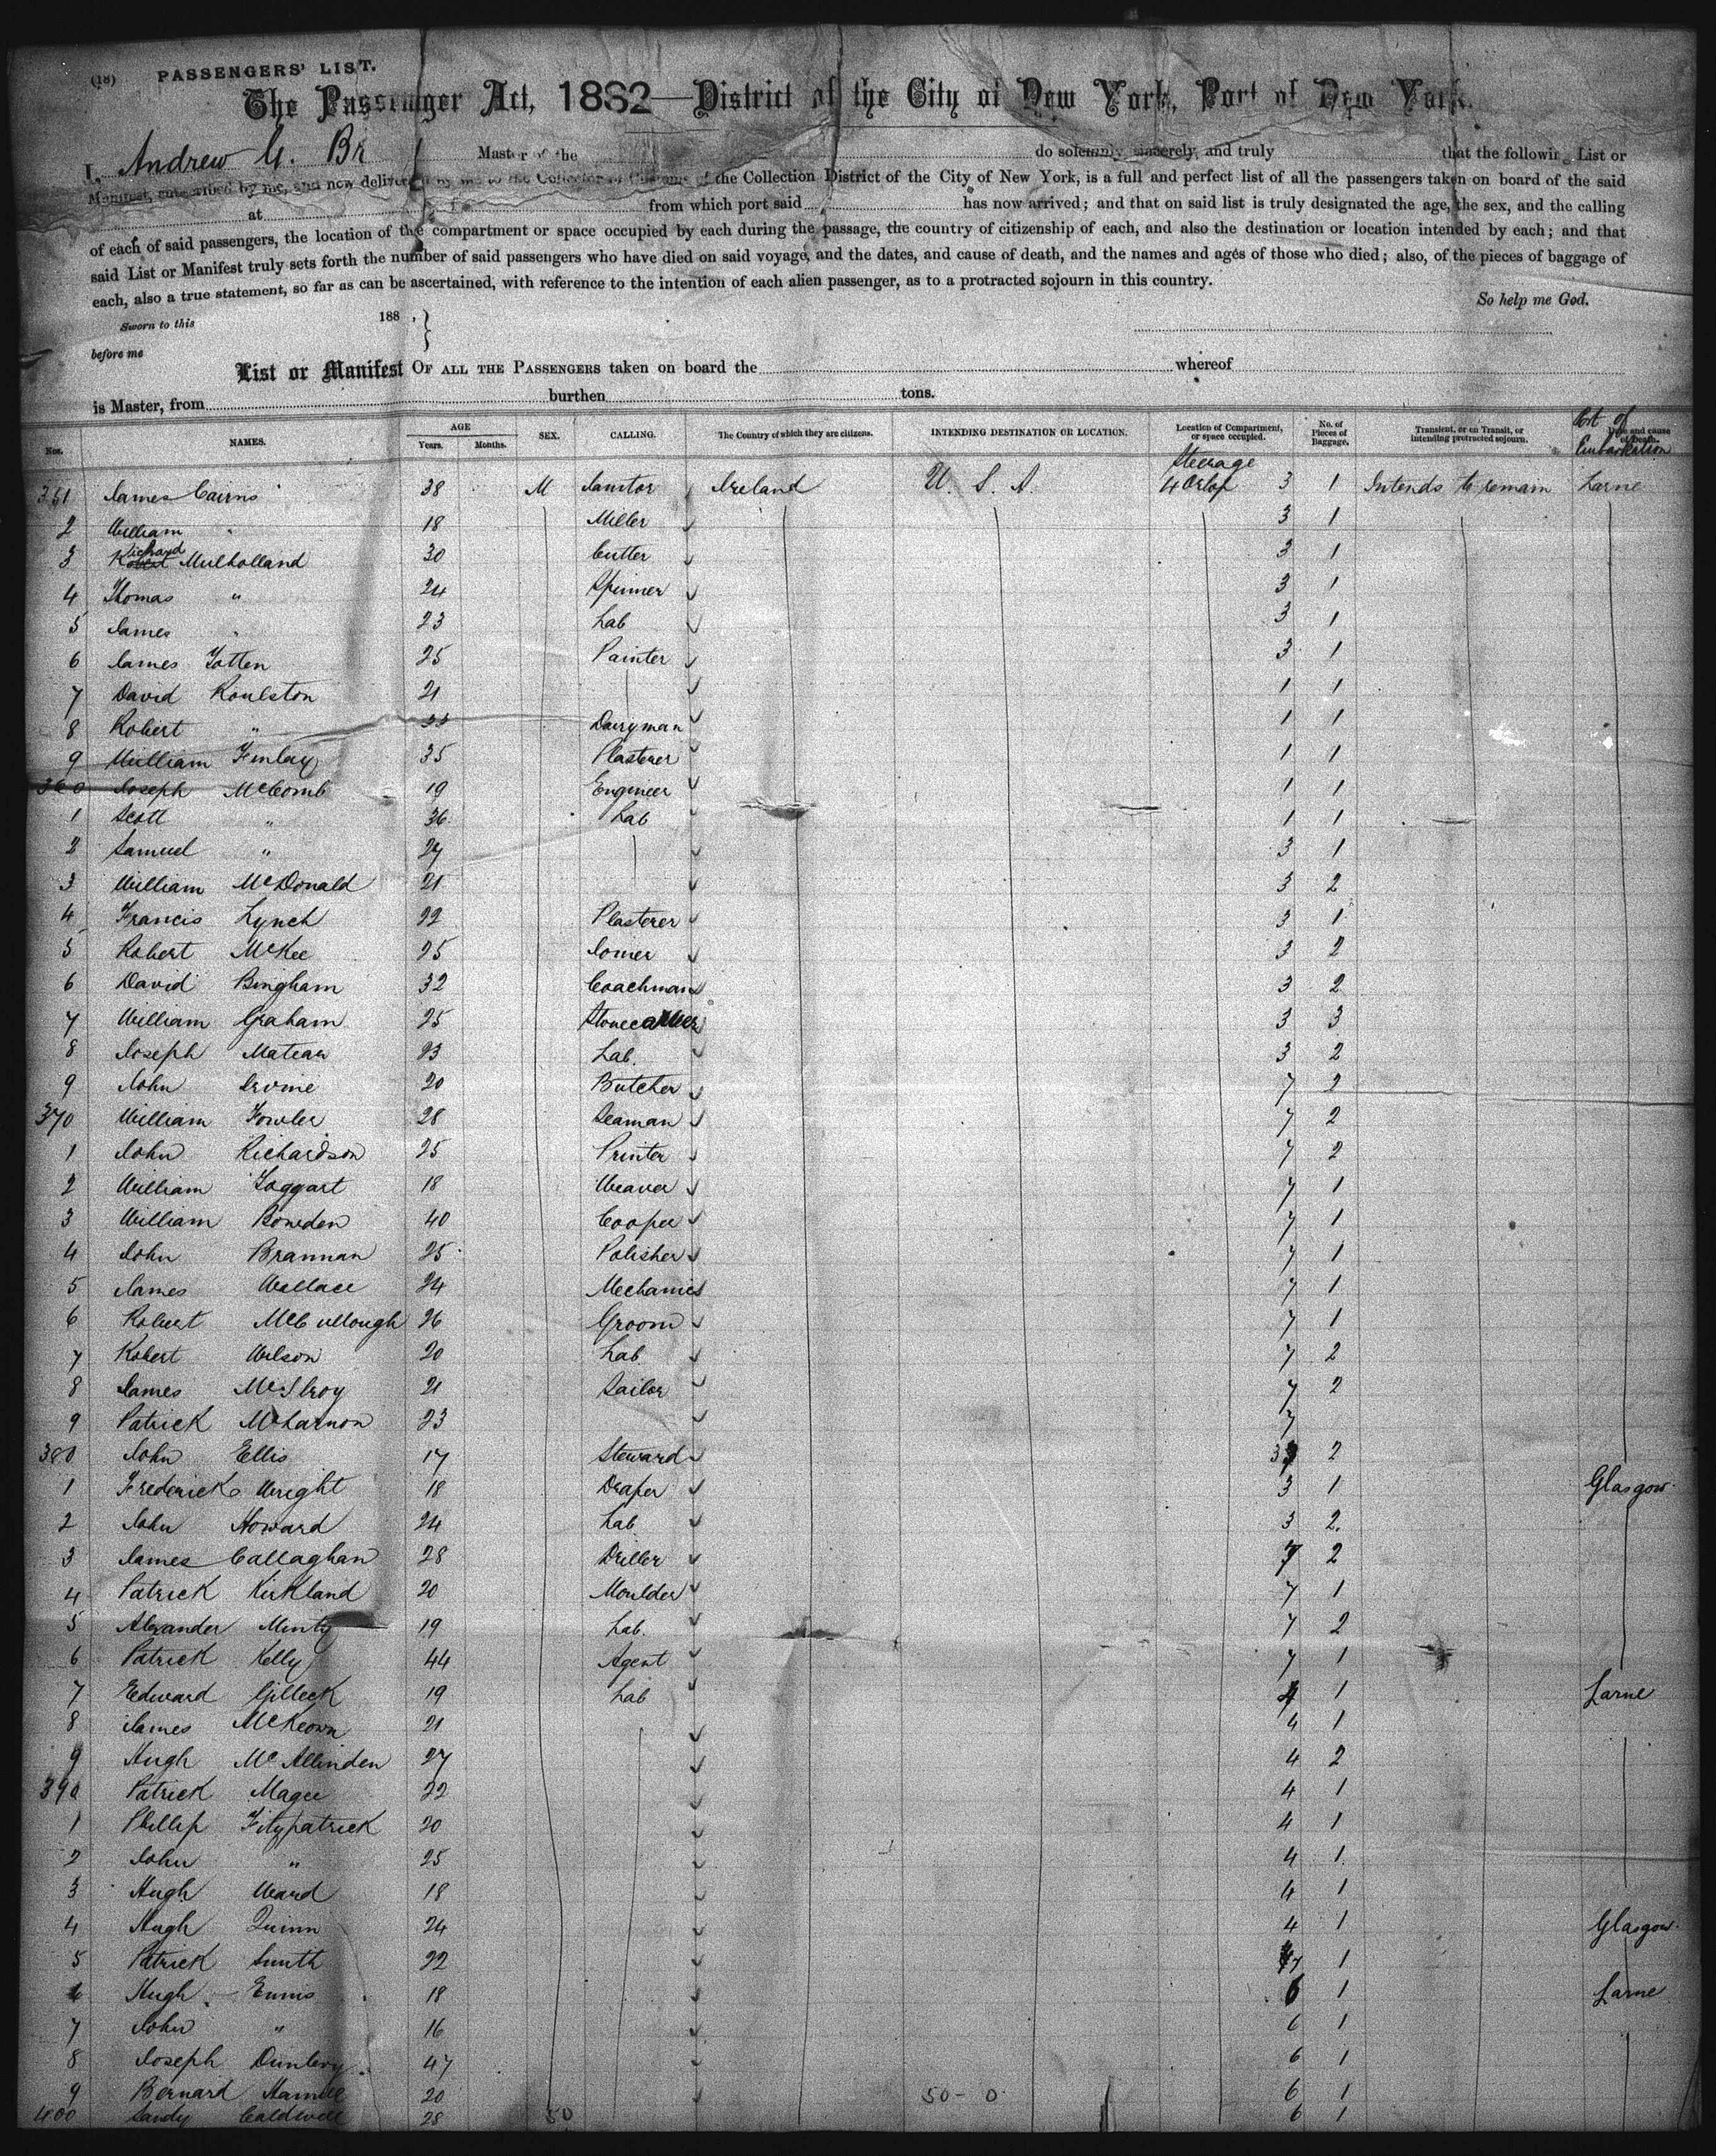 (18) PASSENGERS' LIST.
The Passenger Act, 1882—District of the City of New York, Port of New York.
I, Andrew G. Master of the do solemnly, sincerely, and truly that the following List or
Manifest, subscribed by me, and now delivered by me to the Collector of Customs of the Collection District of the City of New York, is a full and perfect list of all the passengers taken on board of the said
at from which port said has now arrived; and that on said list is truly designated the age, the sex, and the calling
of each of said passengers, the location of the compartment or space occupied by each during the passage, the country of citizenship of each, and also the destination or location intended by each; and that
said List or Manifest truly sets forth the number of said passengers who have died on said voyage, and the dates, and cause of death, and the names and ages of those who died; also, of the pieces of baggage of
each, also a true statement, so far as can be ascertained, with reference to the intention of each alien passenger, as to a protracted sojourn in this country.
So help me God.
Sworn to this 188 ,
before me
List or Manifest OF ALL THE PASSENGERS taken on board the whereof
is Master, from burthen tons.
Nos. NAMES. AGE Years. Months. SEX. CALLING. The Country of which they are citizens. INTENDING DESTINATION OR LOCATION. Location of Compartment, or space occupied. No. of Pieces of Baggage. Transient, or en Transit, or intending protracted sojourn. Date and cause of Death. Port of Embarkation
Steerage
351 James Cairns 38 M Ireland U. S. A. 4 Orlop 3 1 Intends to remain Larne
2 William " 18 Miller 3 1
3 Richard Mulholland 30 Cutter 3 1
4 Thomas " 24 Spinner 3 1
5 James " 23 Lab 3 1
6 James Totten 25 Painter 3 1
7 David Roulston 21 1 1
8 Robert " Dairyman 1 1
9 William Finlay 35 Plasterer 1 1
360 Joseph McComb 19 Engineer 1 1
1 Scott " 36 Lab 1 1
2 Samuel " 27 3 1
3 William McDonald 21 3 2
4 Francis Lynch 22 Plasterer 3 1
5 Robert McKee 25 3 2
6 David Bingham 32 Coachman 3 2
7 William Graham 25 3 3
8 Joseph Matear 23 Lab. 3 2
9 John Irvine 20 Butcher 7 2
370 William Fowler 28 Seaman 7 2
1 John Richardson 25 Printer 7 2
2 William Taggart 18 Weaver 7 1
3 William Bowden 40 Cooper 7 1
4 John Brannan 25 Polisher 7 1
5 James Wallace 24 Mechanic 7 1
6 Robert McCullough 26 Groom 7 1
7 Robert Wilson 20 Lab. 7 2
8 James McIlroy 21 Sailor 7 2
9 Patrick McLarnon 23 7
380 John Ellis 17 Steward 3 2
1 Frederick Wright 18 Draper 3 1 Glasgow
2 John Howard 24 Lab 3 2
3 James Callaghan 28 Driller 7 2
4 Patrick Kirkland 20 Moulder 7 1
5 Alexander Minty 19 Lab. 7 2
6 Patrick Kelly 44 Agent 7 1
7 Edward Gilleck 19 Lab 4 1 Larne
8 James McKeown 21 4 1
9 Hugh McAllinden 27 4 2
390 Patrick Magee 22 4 1
1 Phillip Fitzpatrick 20 4 1
2 John " 25 4 1
3 Hugh Ward 18 4 1
4 Hugh Quinn 24 4 1 Glasgow
5 Patrick Smith 22 1
6 Hugh Ennis 18 6 1 Larne
7 John " 16 6 1
8 Joseph Dunlevy 47 6 1
9 Bernard Hamill 20 50-0 6 1
400 Sandy Caldwell 28 50 6 1